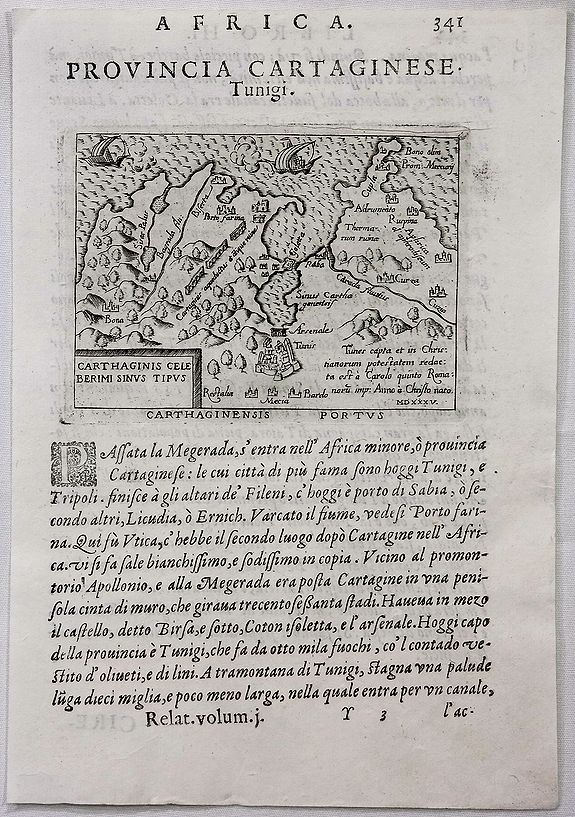 AFRICA. 341
PROVINCIA CARTAGINESE.
Tunigi.
Bono olim
Prom: Mercurij
Adrumento
Ruspina
Therma-
rum ruinæ
Porto farina
Biserta
Goletta
Raba
Sinus Cartha
ginensis
Bona
Arsenale
Tunis
Rastalia
Mecia
Bardo
CARTHAGINIS CELE
BERIMI SINVS TIPVS
Tunes capta et in Chris-
tianorum potestatem redac-
ta est à Carolo quinto Roma:
norũ imp: Anno à Christo nato.
MDXXXV.
CARTHAGINENSIS PORTVS
PAſſata la Megerada, s'entra nell'Africa minore, ò prouincia
Cartagineſe: le cui città di più fama ſono hoggi Tunigi, e
Tripoli. finiſce à gli altari de' Fileni, c'hoggi è porto di Sabia, ò ſe-
condo altri, Licudia, ò Ernich. Varcato il fiume, vedeſi Porto fari-
na. Qui fù Vtica, c'hebbe il ſecondo luogo dopò Cartagine nell'Afri-
ca. vi ſi fa ſale bianchiſſimo, e ſodiſſimo in copia. Vicino al promon-
torio Apollonio, e alla Megerada era poſta Cartagine in vna peni-
ſola cinta di muro, che giraua trecentoſeßanta ſtadi. Haueua in mezo
il caſtello, detto Birſa, e ſotto, Coton iſoletta, e l'arſenale. Hoggi capo
della prouincia è Tunigi, che fa da otto mila fuochi, co'l contado ve-
ſtito d'oliueti, e di lini. A tramontana di Tunigi, ſtagna vna palude
lũga dieci miglia, e poco meno larga, nella quale entra per vn canale,
Relat. volum. j. Y 3 l'ac-